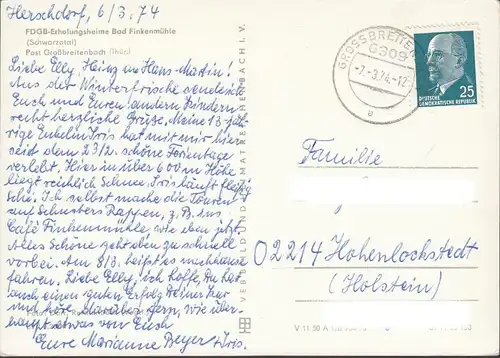 Herschdorf, 6/3. 74
FDGB-Erholungsheime Bad Finkenmühle
(Schwarzatal)
Post Großbreitenbach (Thür.)
Liebe Elly, Heinz u. Hans-Martin!
Aus der Winterfrische sende ich
Euch und Euren andern Kindern
recht herzliche Grüße. Meine 13-jäh-
rige Enkelin Iris hat mit mir hier
seit dem 23/2. schöne Ferientage
verlebt. Hier in über 600 m Höhe
liegt reichlich Schnee. Iris läuft fleißig
Schi. Ich selbst mache die Touren
auf Schusters Rappen, z.B. ins
Café Finkenmühle, wie eben jetzt.
Alles Schöne geht eben zu schnell
vorbei. Am 8/3. heißt es nachhause
fahren. Liebe Elly, ich hoffe, Du hast
auch einen guten Erfolg Deiner Kur
und hörte gern, wie über-
haupt etwas von Euch
Eure Marianne Beyer u. Iris.
VEB BILD UND HEIMAT REICHENBACH I. V.
GROSSBREITEN
6309
-7.-3.74.-12
e
25
DEUTSCHE
DEMOKRATISCHE REPUBLIK
Familie
02214 Hohenlockstedt
(Holstein)
V 11 50